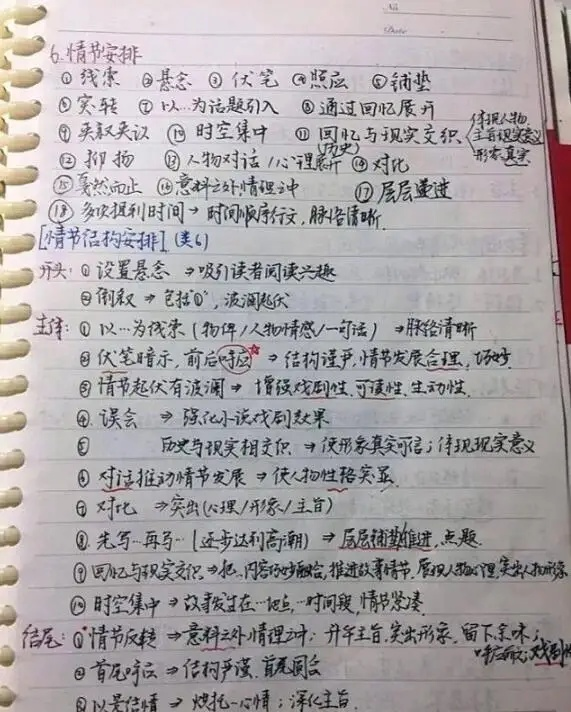 No
Date
6.情节安排
①线索 ②悬念 ③伏笔 ④照应 ⑤铺垫
⑥突转 ⑦以…为话题引入 ⑧通过回忆展开
⑨夹叙夹议 ⑩时空集中 ⑪回忆与现实交织 体现人物
(历史) 主旨现实意义
形象真实
⑫抑扬 ⑬人物对话/心理展开 ⑭对比
⑮戛然而止 ⑯意料之外情理之中 ⑰层层递进
⑱多次提到时间→时间顺序行文,脉络清晰.
[情节结构安排](类6)
开头:①设置悬念⇒吸引读者阅读兴趣
②倒叙→包括"①",波澜起伏
主体:①以…为线索(物件/人物情感/一句话)⇒脉络清晰
②伏笔暗示,前后呼应☆⇒结构严谨,情节发展合理,巧妙
③情节起伏有波澜→增强戏剧性,可读性,生动性.
④误会⇒强化小说戏剧效果
⑤历史与现实相交织⇒使形象真实可信;体现现实意义
⑥对话推动情节发展⇒使人物性格突显
⑦对比⇒突出(心理/形象/主旨)
⑧先写…再写…(逐步达到高潮)⇒层层铺垫推进,点题.
⑨回忆与现实交织⇒把…内容巧妙融合,推进故事情节,展现人物心理,突出人物形象
⑩时空集中→故事发生在…地点…时间段,情节紧凑.
结尾:①情节反转⇒意料之外情理之中;升华主旨,突出形象,留下余味;
呼应前文;戏剧性
②首尾呼应⇒结构严谨,首尾圆合
③以景结情⇒烘托…心情;深化主旨.